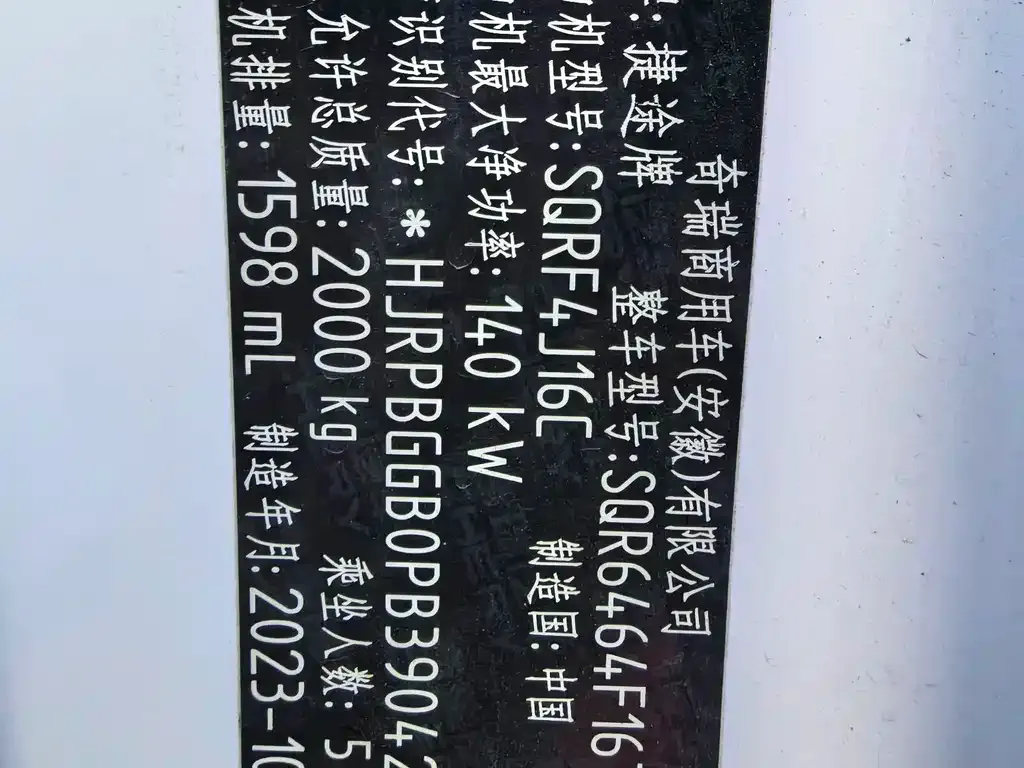 奇瑞商用车(安徽)有限公司
捷途牌 整车型号:SQR6464F16
机型号:SQRF4J16C 制造国:中国
机最大净功率:140 kW
识别代号:*HJRPBGGB0PB3904
允许总质量:2000 kg 乘坐人数:5
机排量:1598 mL 制造年月:2023-10